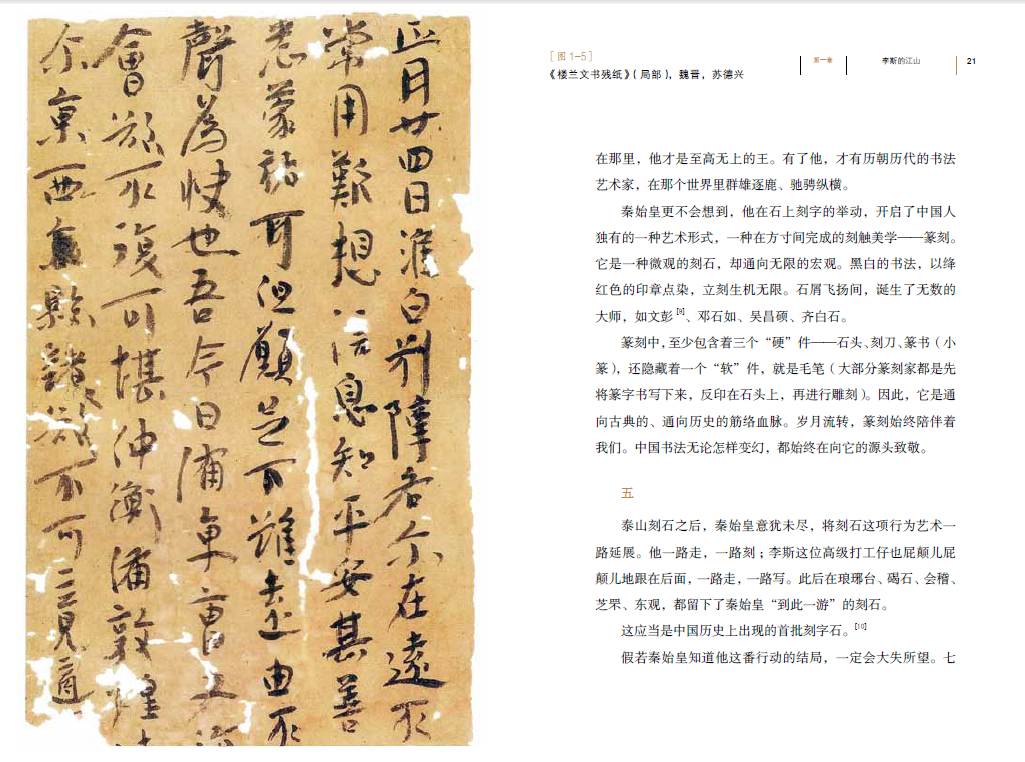 正月廿四日白別障各尒在遠不
常用歎想信息知平安甚善
悉蒙祐耳但願足下雖遠由不
聲為快也吾今日備東曹文
會欲不復可堪仲衡備敦煌
尒東西縣諸欲不可一二見
[图1—5]
《楼兰文书残纸》(局部)，魏晋，苏德兴
第一章 李斯的江山 21
在那里，他才是至高无上的王。有了他，才有历朝历代的书法
艺术家，在那个世界里群雄逐鹿、驰骋纵横。
秦始皇更不会想到，他在石上刻字的举动，开启了中国人
独有的一种艺术形式，一种在方寸间完成的刻触美学——篆刻。
它是一种微观的刻石，却通向无限的宏观。黑白的书法，以绛
红色的印章点染，立刻生机无限。石屑飞扬间，诞生了无数的
大师，如文彭[9]、邓石如、吴昌硕、齐白石。
篆刻中，至少包含着三个“硬”件——石头、刻刀、篆书（小
篆），还隐藏着一个“软”件，就是毛笔（大部分篆刻家都是先
将篆字书写下来，反印在石头上，再进行雕刻）。因此，它是通
向古典的、通向历史的筋络血脉。岁月流转，篆刻始终陪伴着
我们。中国书法无论怎样变幻，都始终在向它的源头致敬。
五
泰山刻石之后，秦始皇意犹未尽，将刻石这项行为艺术一
路延展。他一路走，一路刻；李斯这位高级打工仔也屁颠儿屁
颠儿地跟在后面，一路走，一路写。此后在琅琊台、碣石、会稽、
芝罘、东观，都留下了秦始皇“到此一游”的刻石。
这应当是中国历史上出现的首批刻字石。[10]
假若秦始皇知道他这番行动的结局，一定会大失所望。七